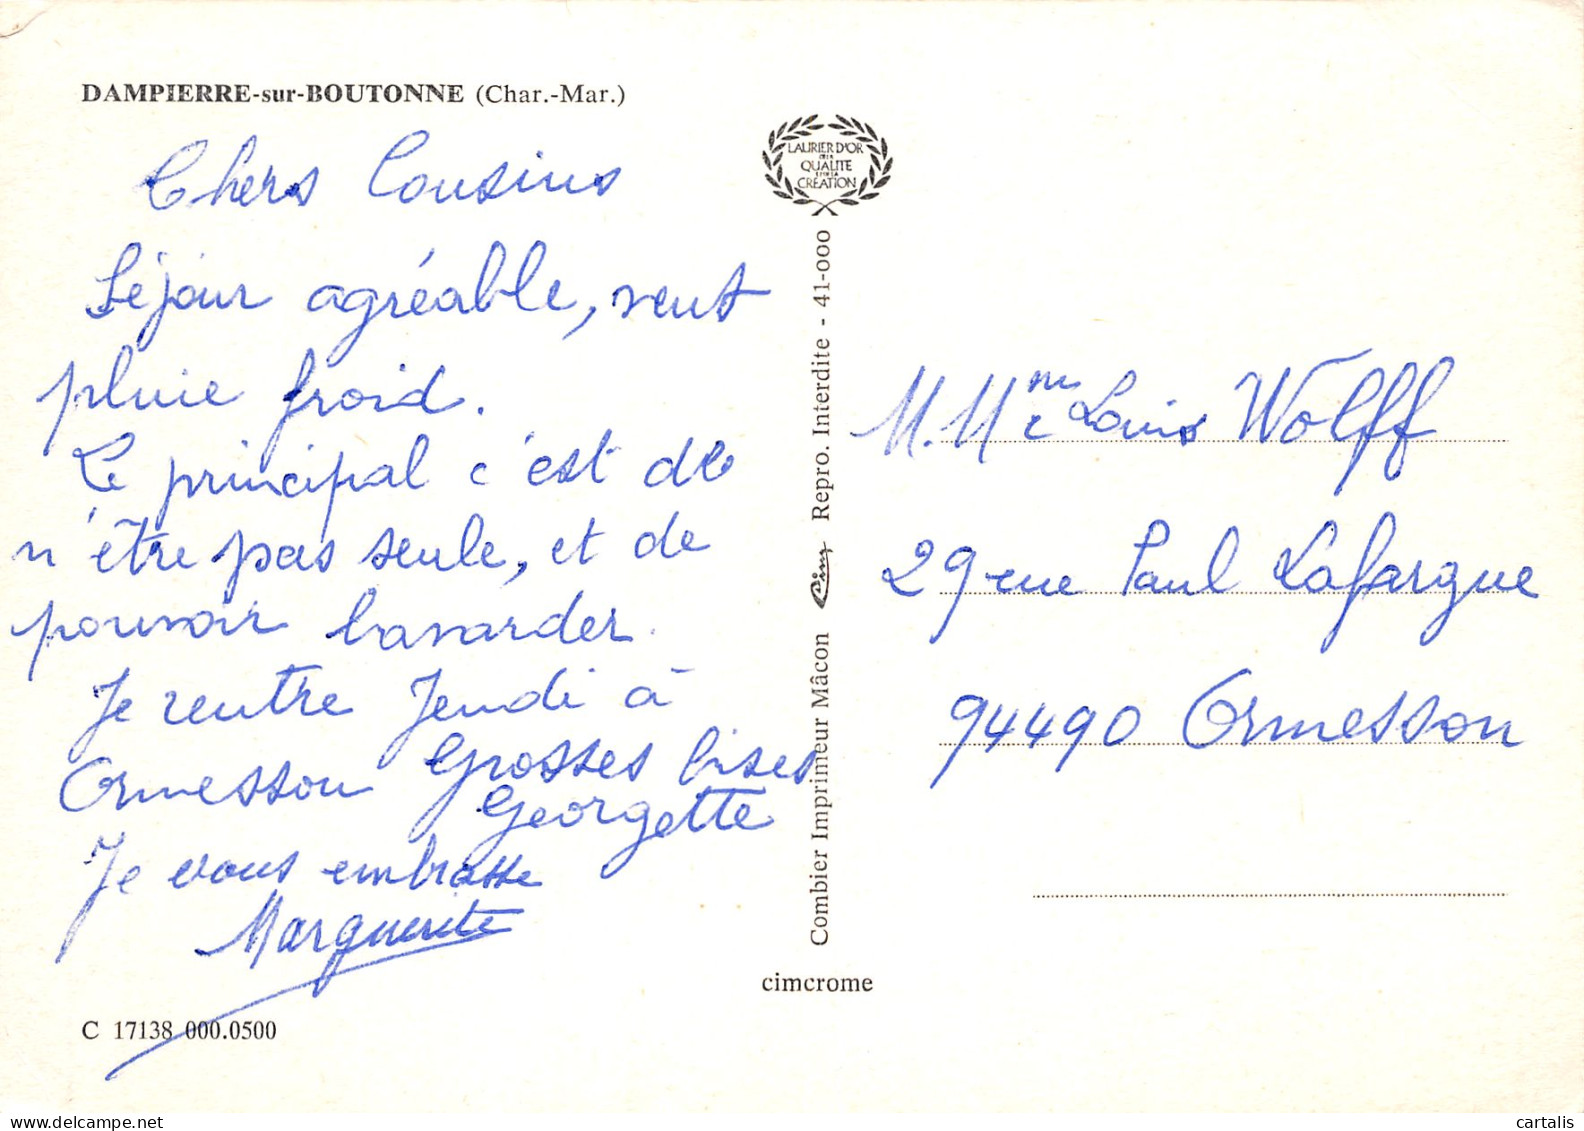 DAMPIERRE-sur-BOUTONNE (Char.-Mar.)
Chers Cousins
Séjour agréable, vent
pluie froid.
Le principal c'est de
n'être pas seule, et de
pouvoir bavarder.
Je rentre Jeudi à
Ormesson Grosses bises
Georgette
Je vous embrasse
Marguerite
C 17138 000.0500
LAURIER D'OR
DE LA
QUALITE
ET DE LA
CRÉATION
Combier Imprimeur Mâcon Cim Repro. Interdite - 41-000
cimcrome
M. Mme Louis Wolff
29 rue Paul Lafargue
94490 Ormesson
cartalis